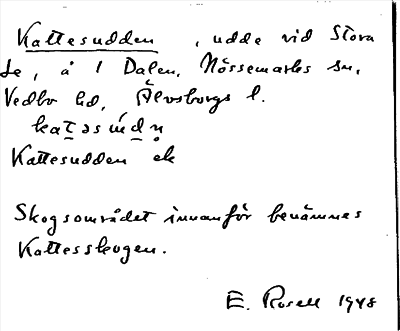 Kattesudden, udde vid Stora
Le, å 1 Dalen, Nössemarks sn,
Vedbo hd, Älvsborgs l.
Kattesudden ek
Skogsområdet innanför benämnes
Kattesskogen.
E. Rosell 1948